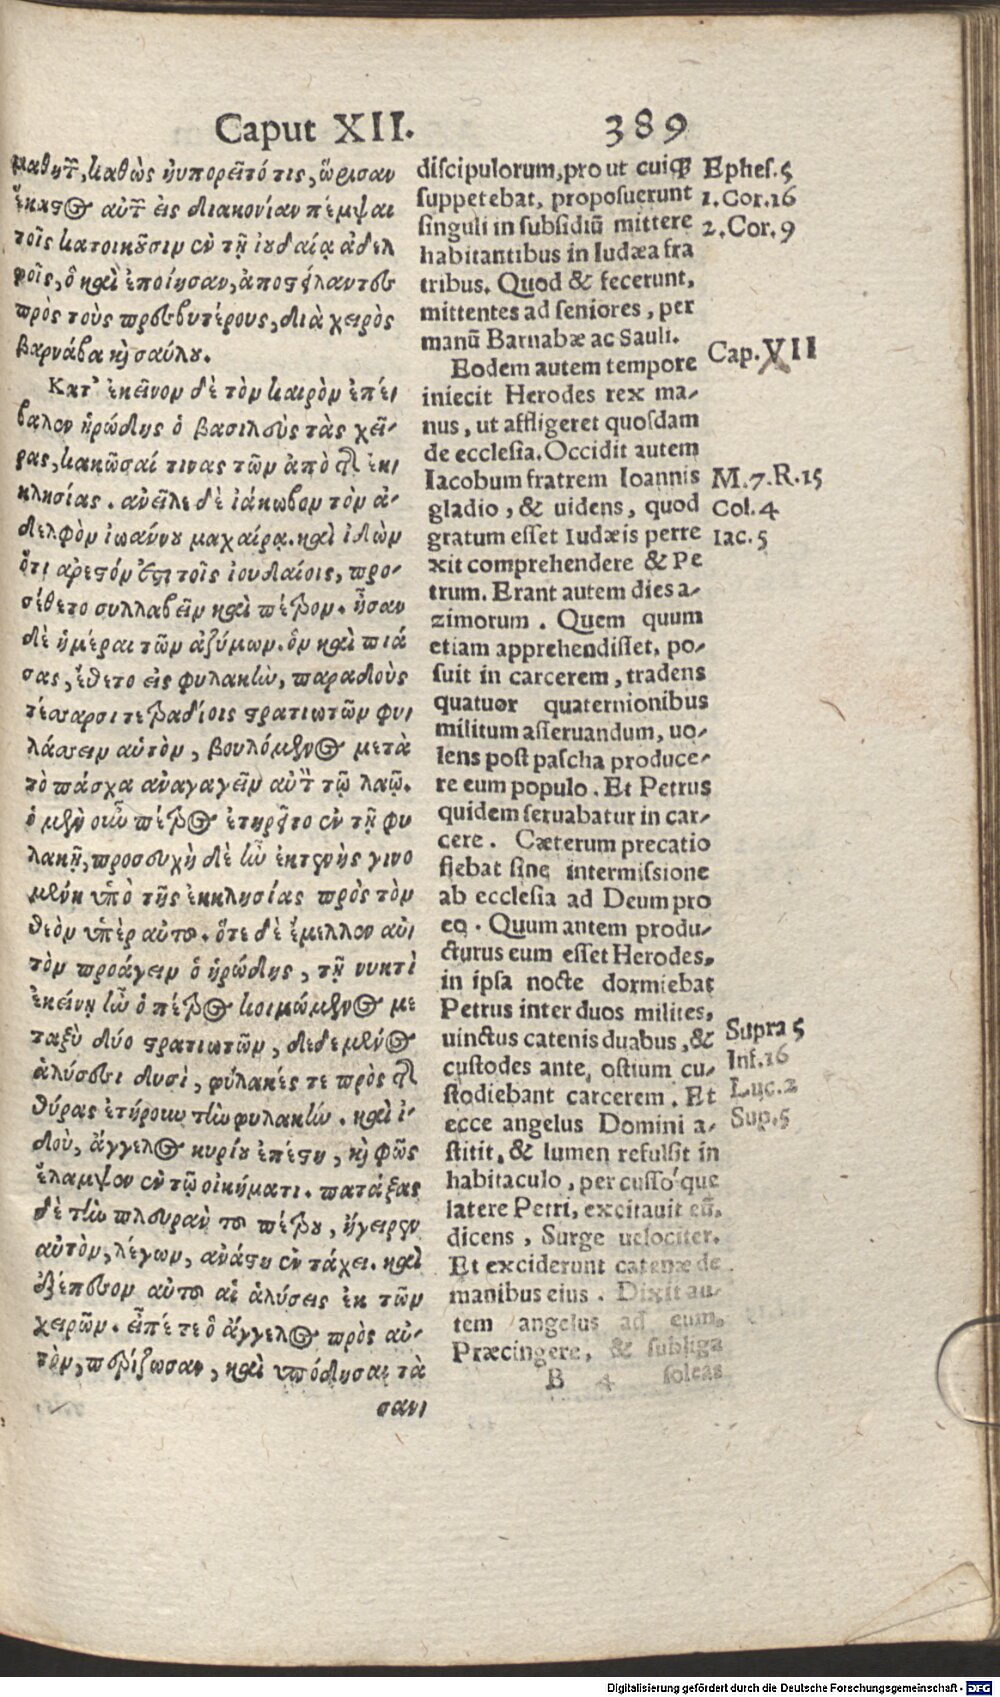 Caput XII. 389
μαθητῶν, καθὼς ηὐπορεῖτό τις, ὥρισαν
ἕκαστος αὐτῶν εἰς διακονίαν πέμψαι
τοῖς κατοικοῦσιν ἐν τῇ ἰουδαίᾳ ἀδελ
φοῖς, ὃ καὶ ἐποίησαν, ἀποστείλαντες
πρὸς τοὺς πρεσβυτέρους, διὰ χειρὸς
βαρνάβα καὶ σαύλου.
Κατ' ἐκεῖνον δὲ τὸν καιρὸν ἐπέ-
βαλον ἡρώδης ὁ βασιλεὺς τὰς χεῖ-
ρας, κακῶσαί τινας τῶν ἀπὸ τῆς ἐκ-
κλησίας. ἀνεῖλε δὲ ἰάκωβον τὸν ἀ-
δελφὸν ἰωάννου μαχαίρᾳ. καὶ ἰδὼν
ὅτι ἀρεστόν ἐστι τοῖς ἰουδαίοις, προ-
σέθετο συλλαβεῖν καὶ πέτρον. ἦσαν
δὲ ἡμέραι τῶν ἀζύμων. ὃν καὶ πιά
σας, ἔθετο εἰς φυλακὴν, παραδοὺς
τέσσαρσι τετραδίοις στρατιωτῶν φυ-
λάσσειν αὐτὸν, βουλόμενος μετὰ
τὸ πάσχα ἀναγαγεῖν αὐτὸν τῷ λαῷ.
ὁ μὲν οὖν πέτρος ἐτηρεῖτο ἐν τῇ φυ
λακῇ, προσευχὴ δὲ ἦν ἐκτενὴς γινο
μένη ὑπὸ τῆς ἐκκλησίας πρὸς τὸν
θεὸν ὑπὲρ αὐτοῦ. ὅτε δὲ ἔμελλον αὐ-
τὸν προάγειν ὁ ἡρώδης, τῇ νυκτὶ
ἐκείνῃ ἦν ὁ πέτρος κοιμώμενος με
ταξὺ δύο στρατιωτῶν, δεδεμένος
ἁλύσεσι δυσὶ, φύλακές τε πρὸς τῆς
θύρας ἐτήρουν τὴν φυλακήν. καὶ ἰ-
δοὺ, ἄγγελος κυρίου ἐπέστη, καὶ φῶς
ἔλαμψον ἐν τῷ οἰκήματι. πατάξας
δὲ τὴν πλευρὰν τοῦ πέτρου, ἤγειρεν
αὐτὸν, λέγων, ἀνάστα ἐν τάχει. καὶ
ἐξέπεσον αὐτοῦ αἱ ἁλύσεις ἐκ τῶν
χειρῶν. εἶπέ τε ὁ ἄγγελος πρὸς αὐ-
τὸν, περίζωσαι, καὶ ὑπόδησαι τὰ
σαν-
discipulorum, pro ut cuiq;
suppetebat, proposuerunt
singuli in subsidiū mittere
habitantibus in Iudæa fra
tribus. Quod & fecerunt,
mittentes ad seniores, per
manū Barnabæ ac Sauli.
Eodem autem tempore
iniecit Herodes rex ma-
nus, ut affligeret quosdam
de ecclesia. Occidit autem
Iacobum fratrem Ioannis
gladio, & uidens, quod
gratum esset Iudæis perre
xit comprehendere & Pe
trum. Erant autem dies a-
zimorum. Quem quum
etiam apprehendisset, po-
suit in carcerem, tradens
quatuor quaternionibus
militum asseruandum, uo-
lens post pascha produce-
re eum populo. Et Petrus
quidem seruabatur in car-
cere. Cæterum precatio
fiebat sine intermissione
ab ecclesia ad Deum pro
eo. Quum antem produ-
cturus eum esset Herodes,
in ipsa nocte dormiebat
Petrus inter duos milites,
uinctus catenis duabus, &
custodes ante, ostium cu-
stodiebant carcerem. Et
ecce angelus Domini a-
stitit, & lumen refulsit in
habitaculo, percussó que
latere Petri, excitauit eū,
dicens, Surge uelociter.
Et exciderunt catenæ de
manibus eius. Dixit au-
tem angelus ad eum,
Præcingere, & subliga
B 4 soleas
Ephes. 5
1. Cor. 16
2. Cor. 9
Cap. XII
M. 7. R. 15
Col. 4
Iac. 5
Supra 5
Inf. 16
Luc. 2
Sup. 5
Digitalisierung gefördert durch die Deutsche Forschungsgemeinschaft - DFG